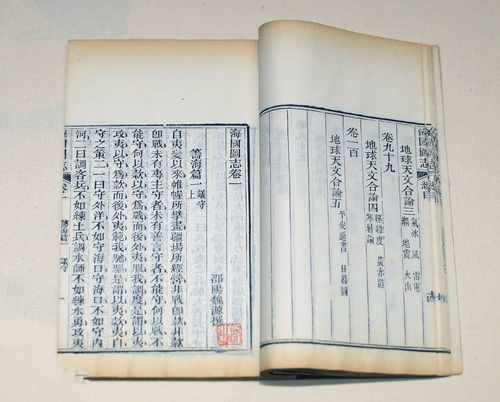 海國圖志
總目
地球天文合論三 氣 冰 風 雷電
潮 地震 火山
卷九十九
地球天文合論四 經緯度 黃赤道
寒暑論
卷一百
地球天文合論五 平安通書 日晷圖
海國圖志卷一
邵陽魏源
籌海篇一 議守上
自夷變以來帷幄所擘畫疆場所經營非戰卽款非款
卽戰未有專主守者未有善言守者不能守何以戰不
能守何以款以守爲戰而後外夷服我調度是謂以夷攻
夷以守爲款而後外夷範我馳驅是謂以夷款夷自
守之策二一曰守外洋不如守海口守海口不如守內
河二曰調客兵不如練土兵調水師不如練水勇攻夷
卷一
籌海篇一 議守